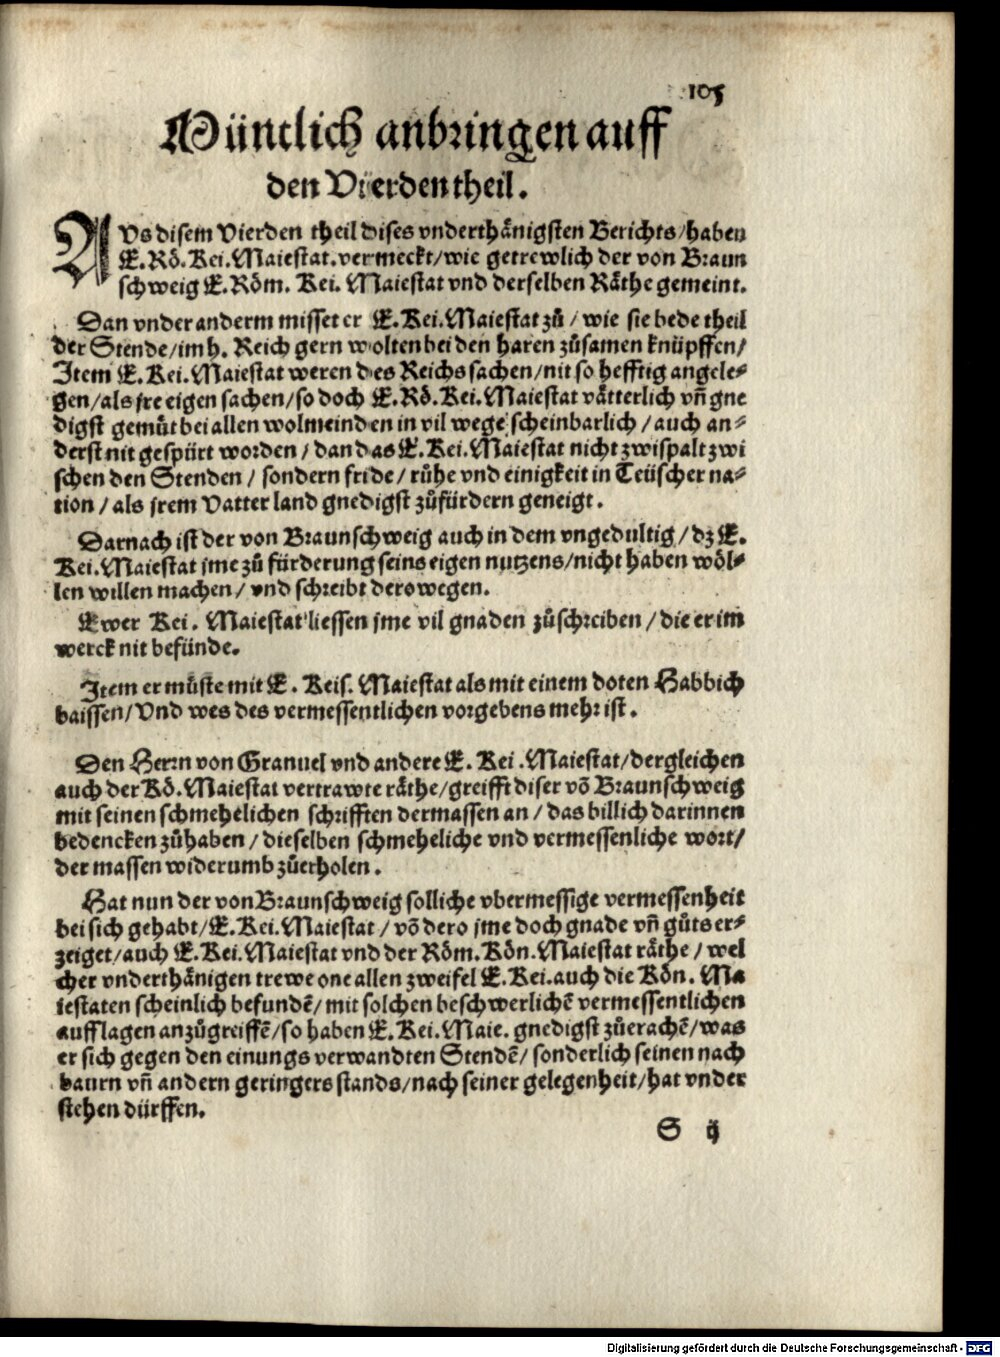 105
Müntlich anbringen auff
den Vierden theil.
AVs disem Vierden theil dises vnderthänigsten Berichts/haben
E.Rö.Kei.Maiestat.vermeckt/wie getrewlich der von Braun
schweig E.Röm. Kei. Maiestat vnd derselben Räthe gemeint.
Dan vnder anderm misset er E.Kei.Maiestat zů/wie sie bede theil
der Stende/im h. Reich gern wolten bei den haren zůsamen knüpffen/
Item E.Kei.Maiestat weren des Reichs sachen/nit so hefftig angele-
gen/als jre eigen sachen/so doch E.Rö.Kei.Maiestat vätterlich vñ gne
digst gemüt bei allen wolmeinden in vil wege scheinbarlich/auch an-
derst nit gespürt worden/dan das E.Kei.Maiestat nicht zwispalt zwi
schen den Stenden/sondern fride/rühe vnd einigkeit in Teüscher na-
tion/als jrem Vatterland gnedigst zůfürdern geneigt.
Darnach ist der von Braunschweig auch in dem vngedultig/dz E.
Kei.Maiestat jme zů fürderung seins eigen nutzens/nicht haben wöl-
len willen machen/vnd schreibt derowegen.
Ewer Kei. Maiestat liessen jme vil gnaden zůschreiben/die er im
werck nit befünde.
Item er müste mit E. Keis. Maiestat als mit einem doten Habbich
baissen/Vnd wes des vermessentlichen vorgebens mehr ist.
Den Herrn von Granuel vnd andere E. Kei.Maiestat/dergleichen
auch der Kö.Maiestat vertrawte räthe/greifft diser võ Braunschweig
mit seinen schmehelichen schrifften dermassen an/das billich darinnen
bedencken zůhaben/dieselben schmeheliche vnd vermessenliche wort/
der massen widerumb zůerholen.
Hat nun der von Braunschweig solliche vbermessige vermessenheit
bei sich gehabt/E.Kei.Maiestat/võ dero jme doch gnade vñ gůts er-
zeiget/auch E.Kei.Maiestat vnd der Röm.Kön.Maiestat räthe/wel
cher vnderthänigen trewe one allen zweifel E.Kei.auch die Kön. Ma
iestaten scheinlich befundẽ/mit solchen beschwerlichẽ vermessentlichen
aufflagen anzůgreiffẽ/so haben E.Kei.Maie. gnedigst zůerachẽ/was
er sich gegen den einungs verwandten Stendẽ/sonderlich seinen nach
baurn vñ andern geringers stands/nach seiner gelegenheit/hat vnder
stehen dürffen.
S ij
Digitalisierung gefördert durch die Deutsche Forschungsgemeinschaft - DFG